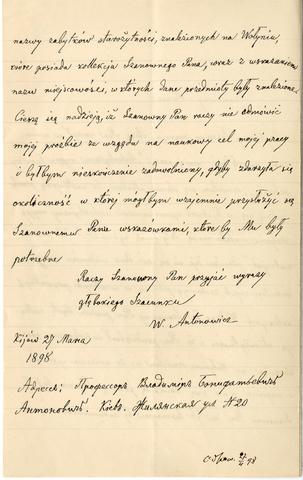 nazwy zabytków starożytności, znalezionych na Wołyniu,
które posiada kollekcja Szanownego Pana, wraz z wskazaniem
nazw miejscowości, w których dane przedmioty były znalezione.
Cieszę się nadzieją, iż Szanowny Pan raczy nie odmówić
mojej prośbie ze względu na naukowy cel mojej pracy
i byłbym nieskończenie zadowolniony, gdyby zdarzyła się
okoliczność w której mógłbym wzajemnie przysłużyć się
Szanownemu Panu wskazówkami, które by Mu były
potrzebne
Raczy Szanowny Pan przyjąć wyrazy
głębokiego Szacunku
W. Antonowicz
Kijów 27 Marca
1898
Адресъ: Профессоръ Владиміръ Бонифатьевичъ
Антоновичъ. Кіевъ. Жилянская ул N 20
98